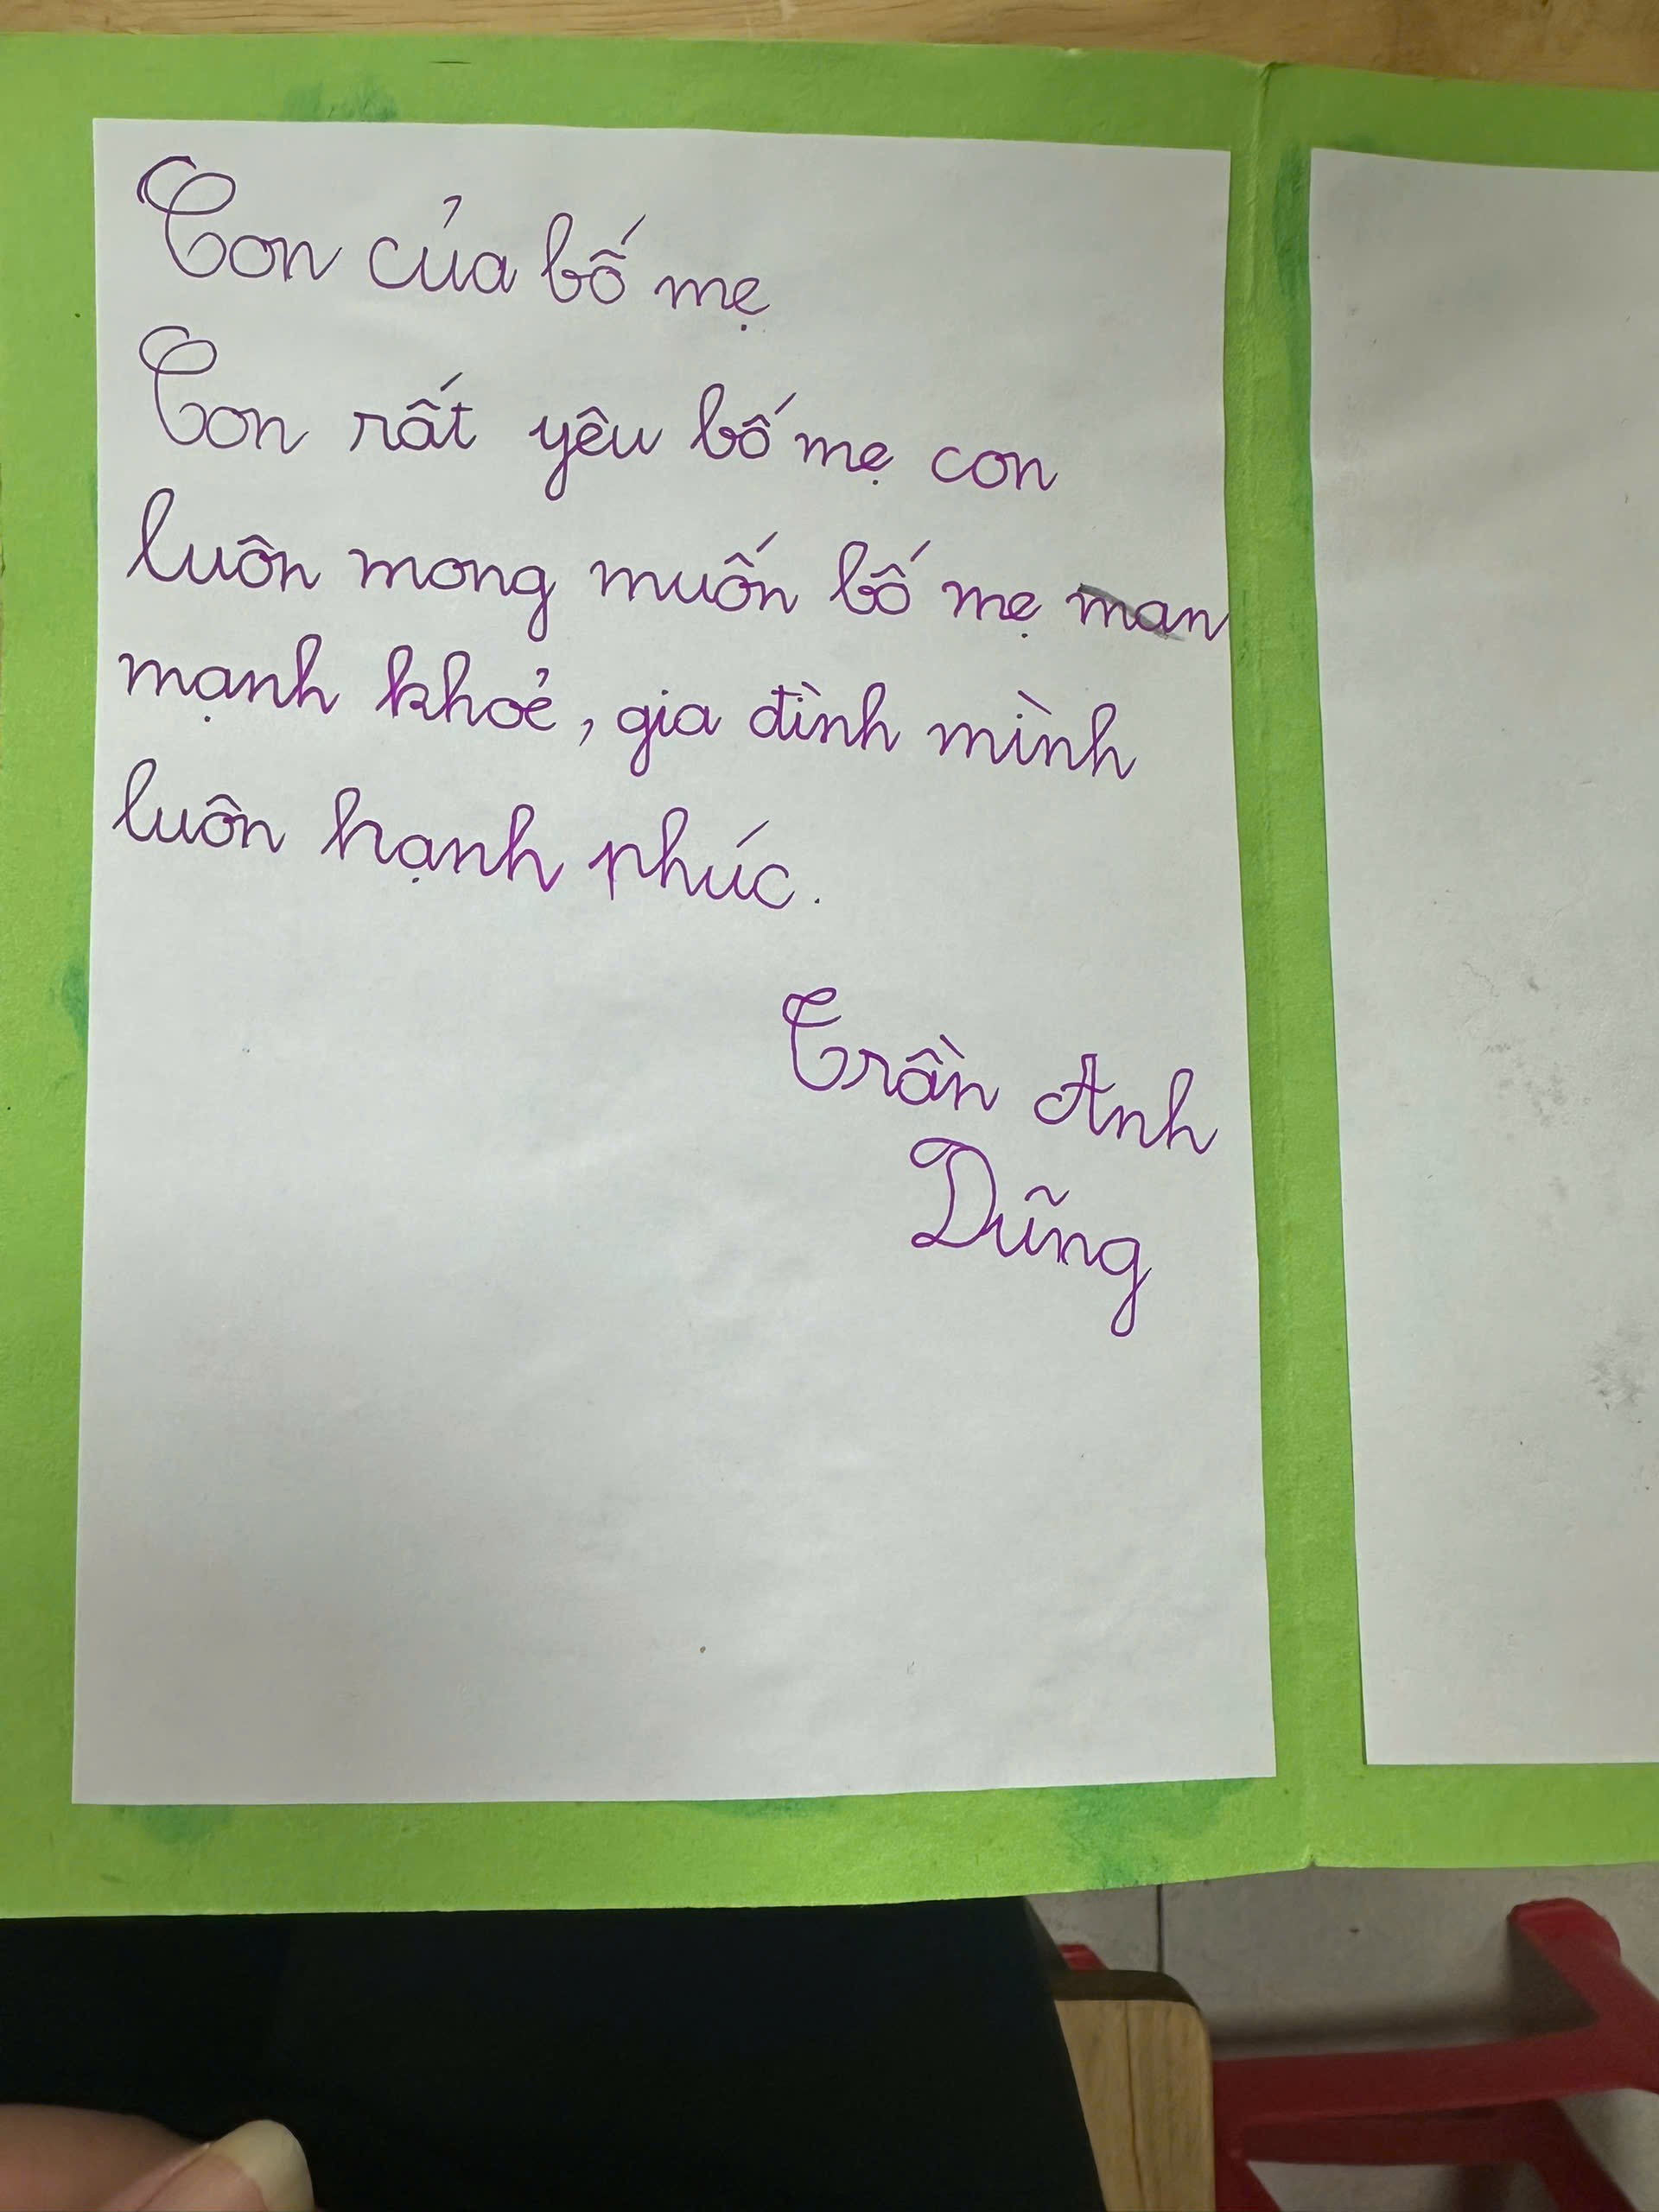 Con của bố mẹ
Con rất yêu bố mẹ con
luôn mong muốn bố mẹ man
mạnh khoẻ, gia đình mình
luôn hạnh phúc.
Trần Anh
Dũng